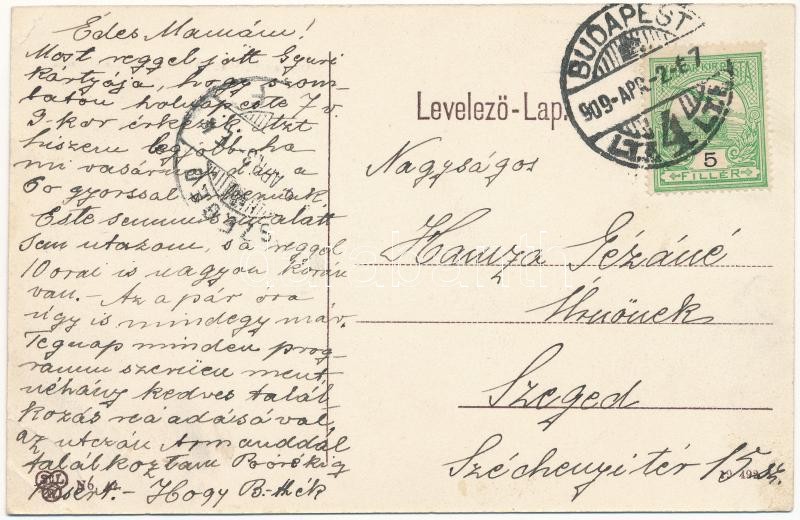 Édes Mamám!
Most reggel jött Gyuri
kártyája, hogy szom-
baton holnap este 7 v.
9-kor érkezik. Azt
hiszem legjobb ha
mi vasárnap a
6os gyorssal
Este semmi alatt
sem utazom, s a reggel
10 órai is nagyon korán
van. – Az a pár óra
úgy is mindegy már.
Tegnap minden prog-
ramm szerűen ment
néhány kedves talál
kozás ráadásával
az utczán Armanddal
találkoztam
kisért. – Hogy B-ték
Levelező-Lap.
BUDAPEST
909-APR-2
4
MAGYAR KIR. POSTA
5
FILLÉR
SZEGED
Nagyságos
Hamza Gézáné
Úrnőnek
Szeged
Széchenyi tér 15 sz.
No